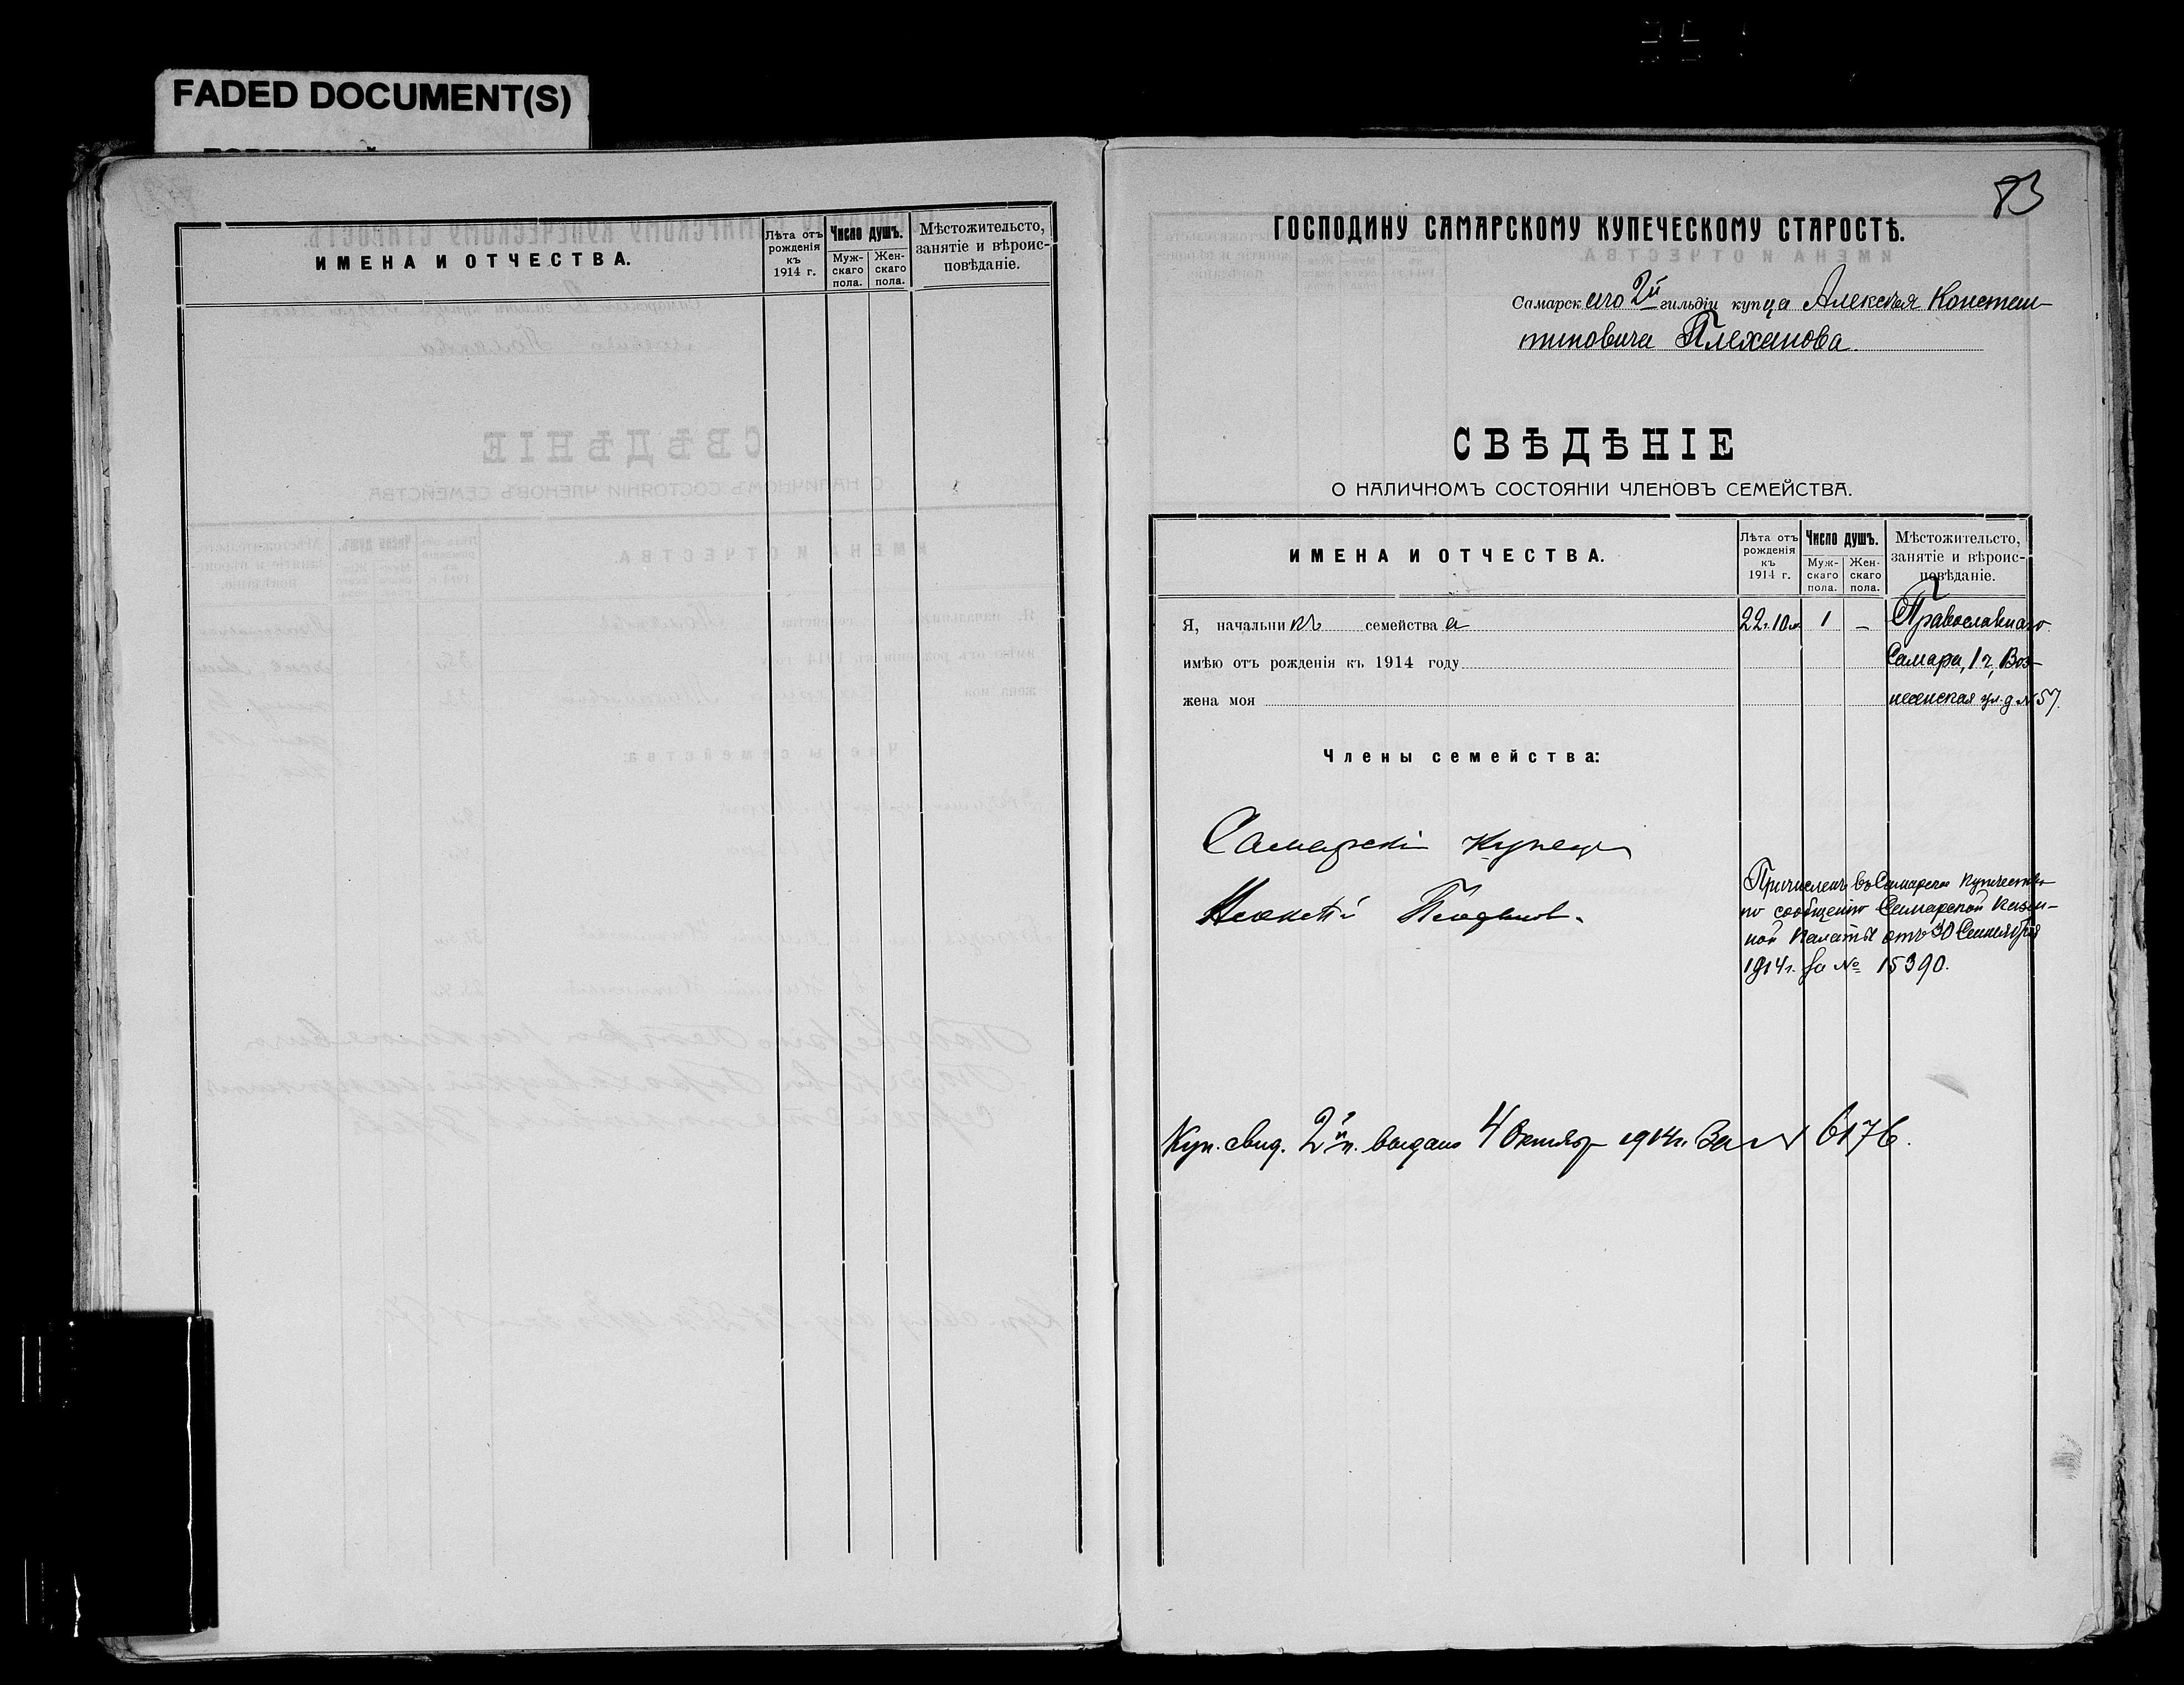 FADED DOCUMENT(S)
ИМЕНА И ОТЧЕСТВА.
Лѣта отъ рожденія къ 1914 г.
Число душъ.
Муж-скаго пола.
Жен-скаго пола.
Мѣстожительсто, занятіе и вѣроис-повѣданіе.
83
ГОСПОДИНУ САМАРСКОМУ КУПЕЧЕСКОМУ СТАРОСТѢ.
Самарскаго 2й гильдіи купца Алексѣя Констан-
тиновича Плеханова
СВѢДѢНІЕ
О НАЛИЧНОМЪ СОСТОЯНІИ ЧЛЕНОВЪ СЕМЕЙСТВА.
ИМЕНА И ОТЧЕСТВА.
Лѣта отъ рожденія къ 1914 г.
Число душъ.
Муж-скаго пола.
Жен-скаго пола.
Мѣстожительсто, занятіе и вѣроис-повѣданіе.
Я, начальникъ семейства а 22г. 10м. 1 — Православнаго.
имѣю отъ рожденія къ 1914 году Самара, 1 ч, Воз-
жена моя несенская ул. д. №57.
Члены семейства:
Самарскій Купецъ
Алексѣй Плеханов.
Причисленъ въ Самарское Купечество
по сообщенію Самарской Казен-
ной Палаты отъ 30 Сентября
1914г. за № 15390.
Куп. свид. 2й г. выдано 4 Октябр 1914г. За № 6176.